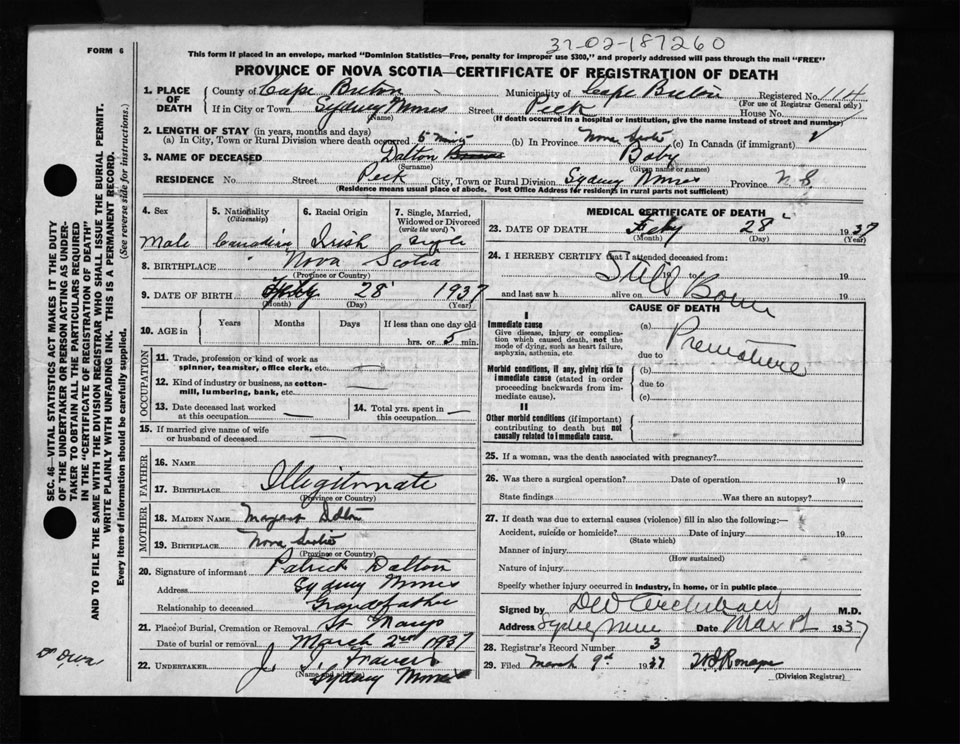 37-02-187260
FORM 6
This form if placed in an envelope, marked "Dominion Statistics—Free, penalty for improper use $300," and properly addressed will pass through the mail "FREE"
PROVINCE OF NOVA SCOTIA—CERTIFICATE OF REGISTRATION OF DEATH
1. PLACE OF DEATH
County of Cape Breton Municipality of Cape Breton Registered No. 114
(For use of Registrar General only)
If in City or Town Sydney Mines Street Peck House No.
(Name) (If death occurred in a hospital or institution, give the name instead of street and number)
2. LENGTH OF STAY (in years, months and days)
(a) In City, Town or Rural Division where death occurred 5 mins (b) In Province Nova Scotia (c) In Canada (if immigrant)
3. NAME OF DECEASED Dalton Baby
(Surname) (Given name or names)
RESIDENCE No. Street Peck City, Town or Rural Division Sydney Mines Province N.S.
(Residence means usual place of abode. Post Office Address for residents in rural parts not sufficient)
4. Sex
Male
5. Nationality
(Citizenship)
Canadian
6. Racial Origin
Irish
7. Single, Married, Widowed or Divorced
(write the word)
Single
8. BIRTHPLACE Nova Scotia
(Province or Country)
9. DATE OF BIRTH Feby 28 1937
(Month) (Day) (Year)
10. AGE in
Years Months Days If less than one day old
hrs. or 5 min.
OCCUPATION
11. Trade, profession or kind of work as spinner, teamster, office clerk, etc.
12. Kind of industry or business, as cotton-mill, lumbering, bank, etc.
13. Date deceased last worked at this occupation
14. Total yrs. spent in this occupation
15. If married give name of wife or husband of deceased
FATHER
16. NAME
Illegitimate
17. BIRTHPLACE
(Province or Country)
MOTHER
18. MAIDEN NAME Margaret Dalton
19. BIRTHPLACE Nova Scotia
(Province or Country)
20. Signature of informant Patrick Dalton
Address Sydney Mines
Relationship to deceased Grandfather
21. Place of Burial, Cremation or Removal St Marys
Date of burial or removal March 2nd 1937
22. UNDERTAKER J. Fraser
(Name and Address)
Sydney Mines
MEDICAL CERTIFICATE OF DEATH
23. DATE OF DEATH Feby 28 1937
(Month) (Day) (Year)
24. I HEREBY CERTIFY that I attended deceased from:
19 to 19
and last saw h alive on 19
Still Born
CAUSE OF DEATH
I
Immediate cause
Give disease, injury or complication which caused death, not the mode of dying, such as heart failure, asphyxia, asthenia, etc.
(a) Premature
due to
Morbid conditions, if any, giving rise to immediate cause (stated in order proceeding backwards from immediate cause).
(b)
due to
(c)
II
Other morbid conditions (if important) contributing to death but not causally related to immediate cause.
25. If a woman, was the death associated with pregnancy?
26. Was there a surgical operation? Date of operation 19
State findings Was there an autopsy?
27. If death was due to external causes (violence) fill in also the following:—
Accident, suicide or homicide? Date of injury 19
(State which)
Manner of injury
(How sustained)
Nature of injury
Specify whether injury occurred in industry, in home, or in public place
Signed by D W Archibald M.D.
Address Sydney Mines Date Mar 1937
28. Registrar's Record Number 3
29. Filed March 9th 1937
(Division Registrar)
SEC. 46—VITAL STATISTICS ACT MAKES IT THE DUTY
OF THE UNDERTAKER OR PERSON ACTING AS UNDER-
TAKER TO OBTAIN ALL THE PARTICULARS REQUIRED
IN THE "CERTIFICATE OF REGISTRATION OF DEATH"
AND TO FILE THE SAME WITH THE DIVISION REGISTRAR WHO SHALL ISSUE THE BURIAL PERMIT.
WRITE PLAINLY WITH UNFADING INK. THIS IS A PERMANENT RECORD.
Every item of information should be carefully supplied. (See reverse side for instructions.)